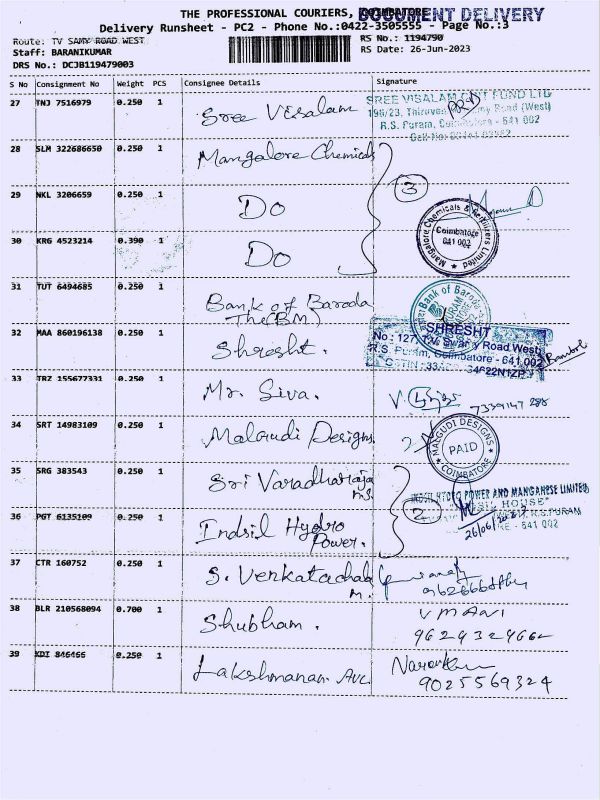 THE PROFESSIONAL COURIERS, COIMBATORE
DOCUMENT DELIVERY
Delivery Runsheet - PC2 - Phone No.:0422-3505555 - Page No.:3
Route: TV SAMY ROAD WEST
RS No.: 1194790
Staff: BARANIKUMAR
RS Date: 26-Jun-2023
DRS No.: DCJB119479003
S No Consignment No Weight PCS Consignee Details Signature
27 TNJ 7516979 0.250 1 Sree Visalam
SREE VISALAM CHIT FUND LTD
R.S. Puram, Coimbatore - 641 002
28 SLM 322686650 0.250 1 Mangalore Chemicals
3
29 NKL 3206659 0.250 1 Do
30 KRG 4523214 0.390 1 Do
Mangalore Chemicals & Fertilizers Limited
Coimbatore
641 002
31 TUT 6494685 0.250 1 Bank of Baroda
The (BM)
Bank of Baroda
32 MAA 860196138 0.250 1 Shresht.
SHRESHT
R.S. Puram, Coimbatore - 641 002
33 TRZ 155677331 0.250 1 Mr. Siva.
34 SRT 14983109 0.250 1 Malgudi Designs
MALGUDI DESIGNS
PAID
COIMBATORE
35 SRG 383543 0.250 1 Sri Varadharaja
ms.
2
INDSIL HYDRO POWER AND MANGANESE LIMITED
"INDSIL HOUSE"
36 PGT 6135109 0.250 1 Indsil Hydro
Power.
26/06/2023
37 CTR 160752 0.250 1 S. Venkatachala
M.
38 BLR 210568094 0.700 1 Shubham.
VMANI
39 KDI 846466 0.250 1 Lakshmanan Ave
9025569324